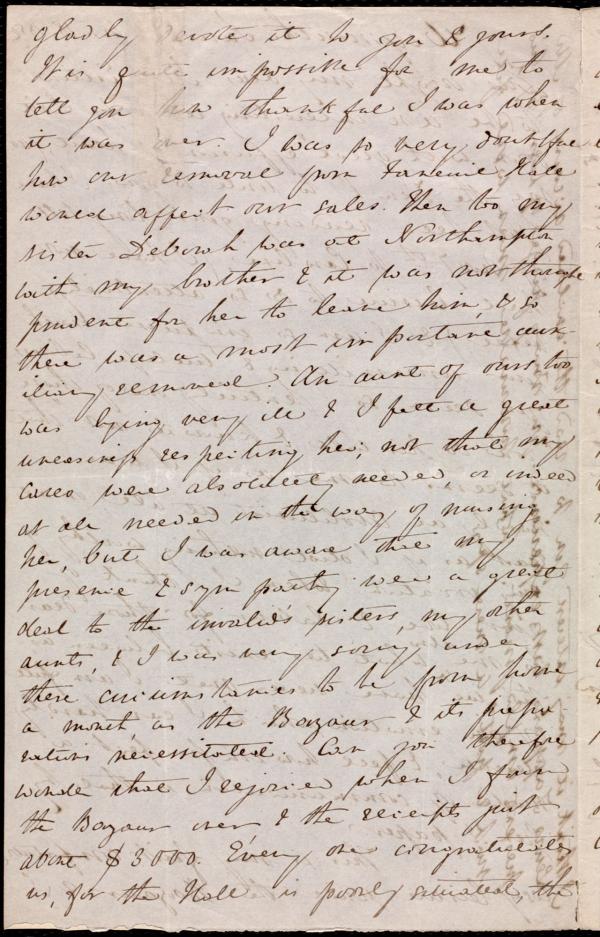 gladly devote it to you & yours.
It is quite impossible for me to
tell you how thankful I was when
it was over. I was so very doubtful
how our removal from Faneuil Hall
would affect our sales. Then too my
sister Deborah was at Northampton
with my brother & it was not thought
prudent for her to leave him, & so
there was a most important aux-
iliary removed. An aunt of ours too
was lying very ill & I felt a great
uneasiness respecting her, not that my
cares were absolutely needed, or indeed
at all needed in the way of nursing
her, but I was aware that my
presence & sympathy were a great
deal to the invalid's sisters, my other
aunts, & I was very sorry under
these circumstances to be from home
a month, as the Bazaar & its prepa-
rations necessitated. Can you therefore
wonder that I rejoiced when I found
the Bazaar over & the receipts just
about $3000. Every one congratulates
us, for the Hall is poorly situated, the